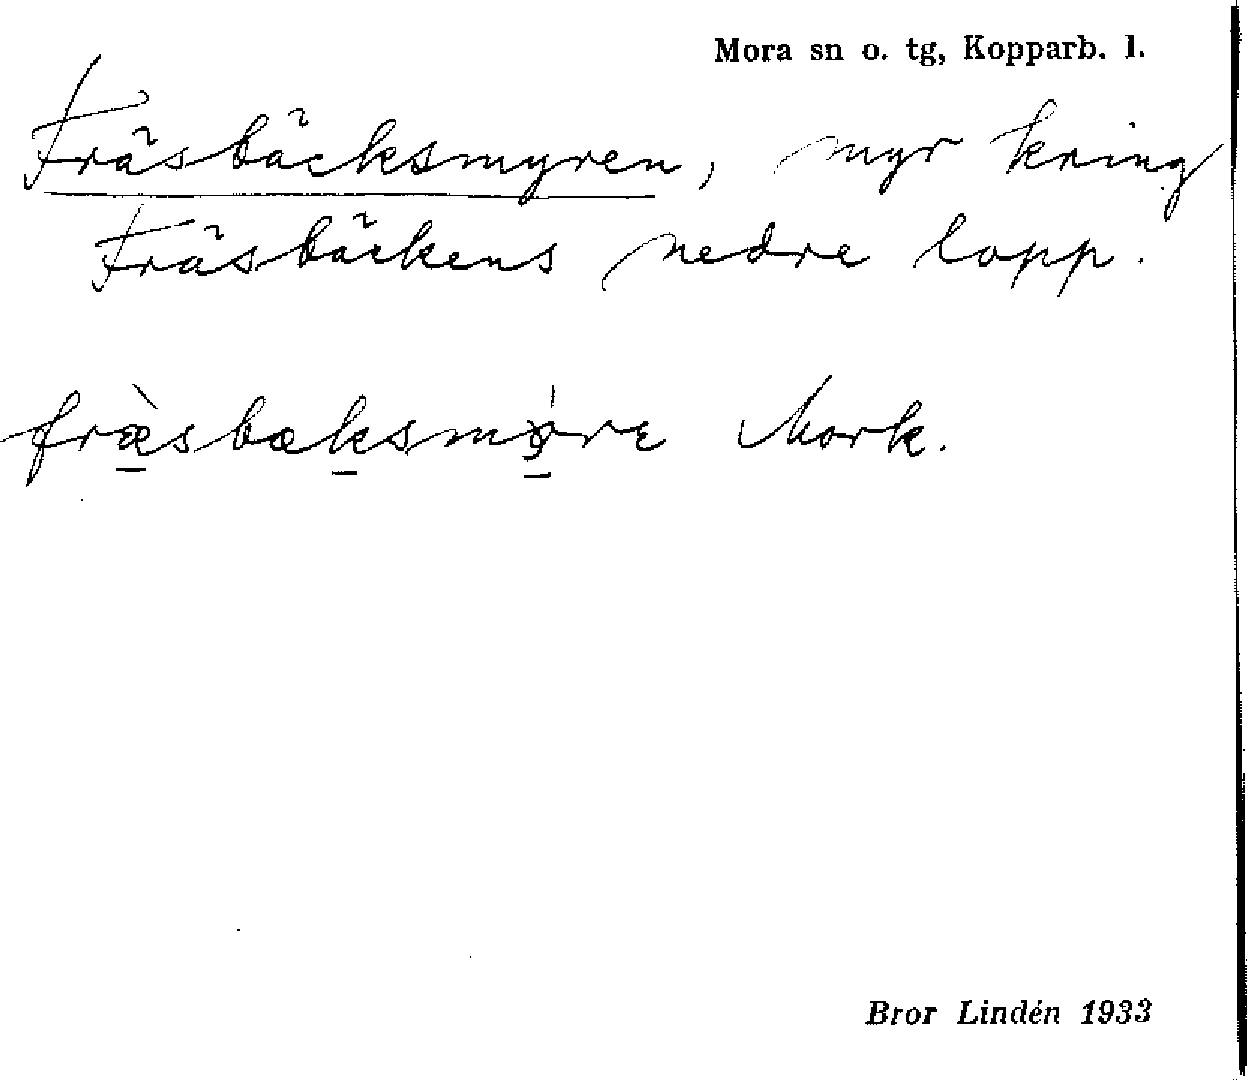 Mora sn o. tg, Kopparb. l.
Fräsbäcksmyren, myr kring
Fräsbäckens nedre lopp.
Mork.
Bror Lindén 1933